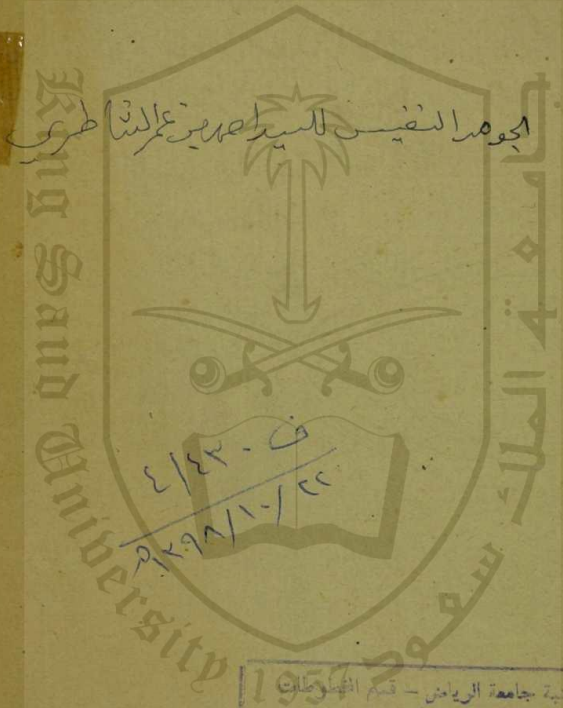 الجوهر النفيس للسيد احمد بن عمر الشاطري
ف ٤/٤٣٠
١٣٩٨/١٠/٢٢ه
King Saud University
جامعة الملك سعود
1957
بة جامعة الرياض - قسم المخطوطات